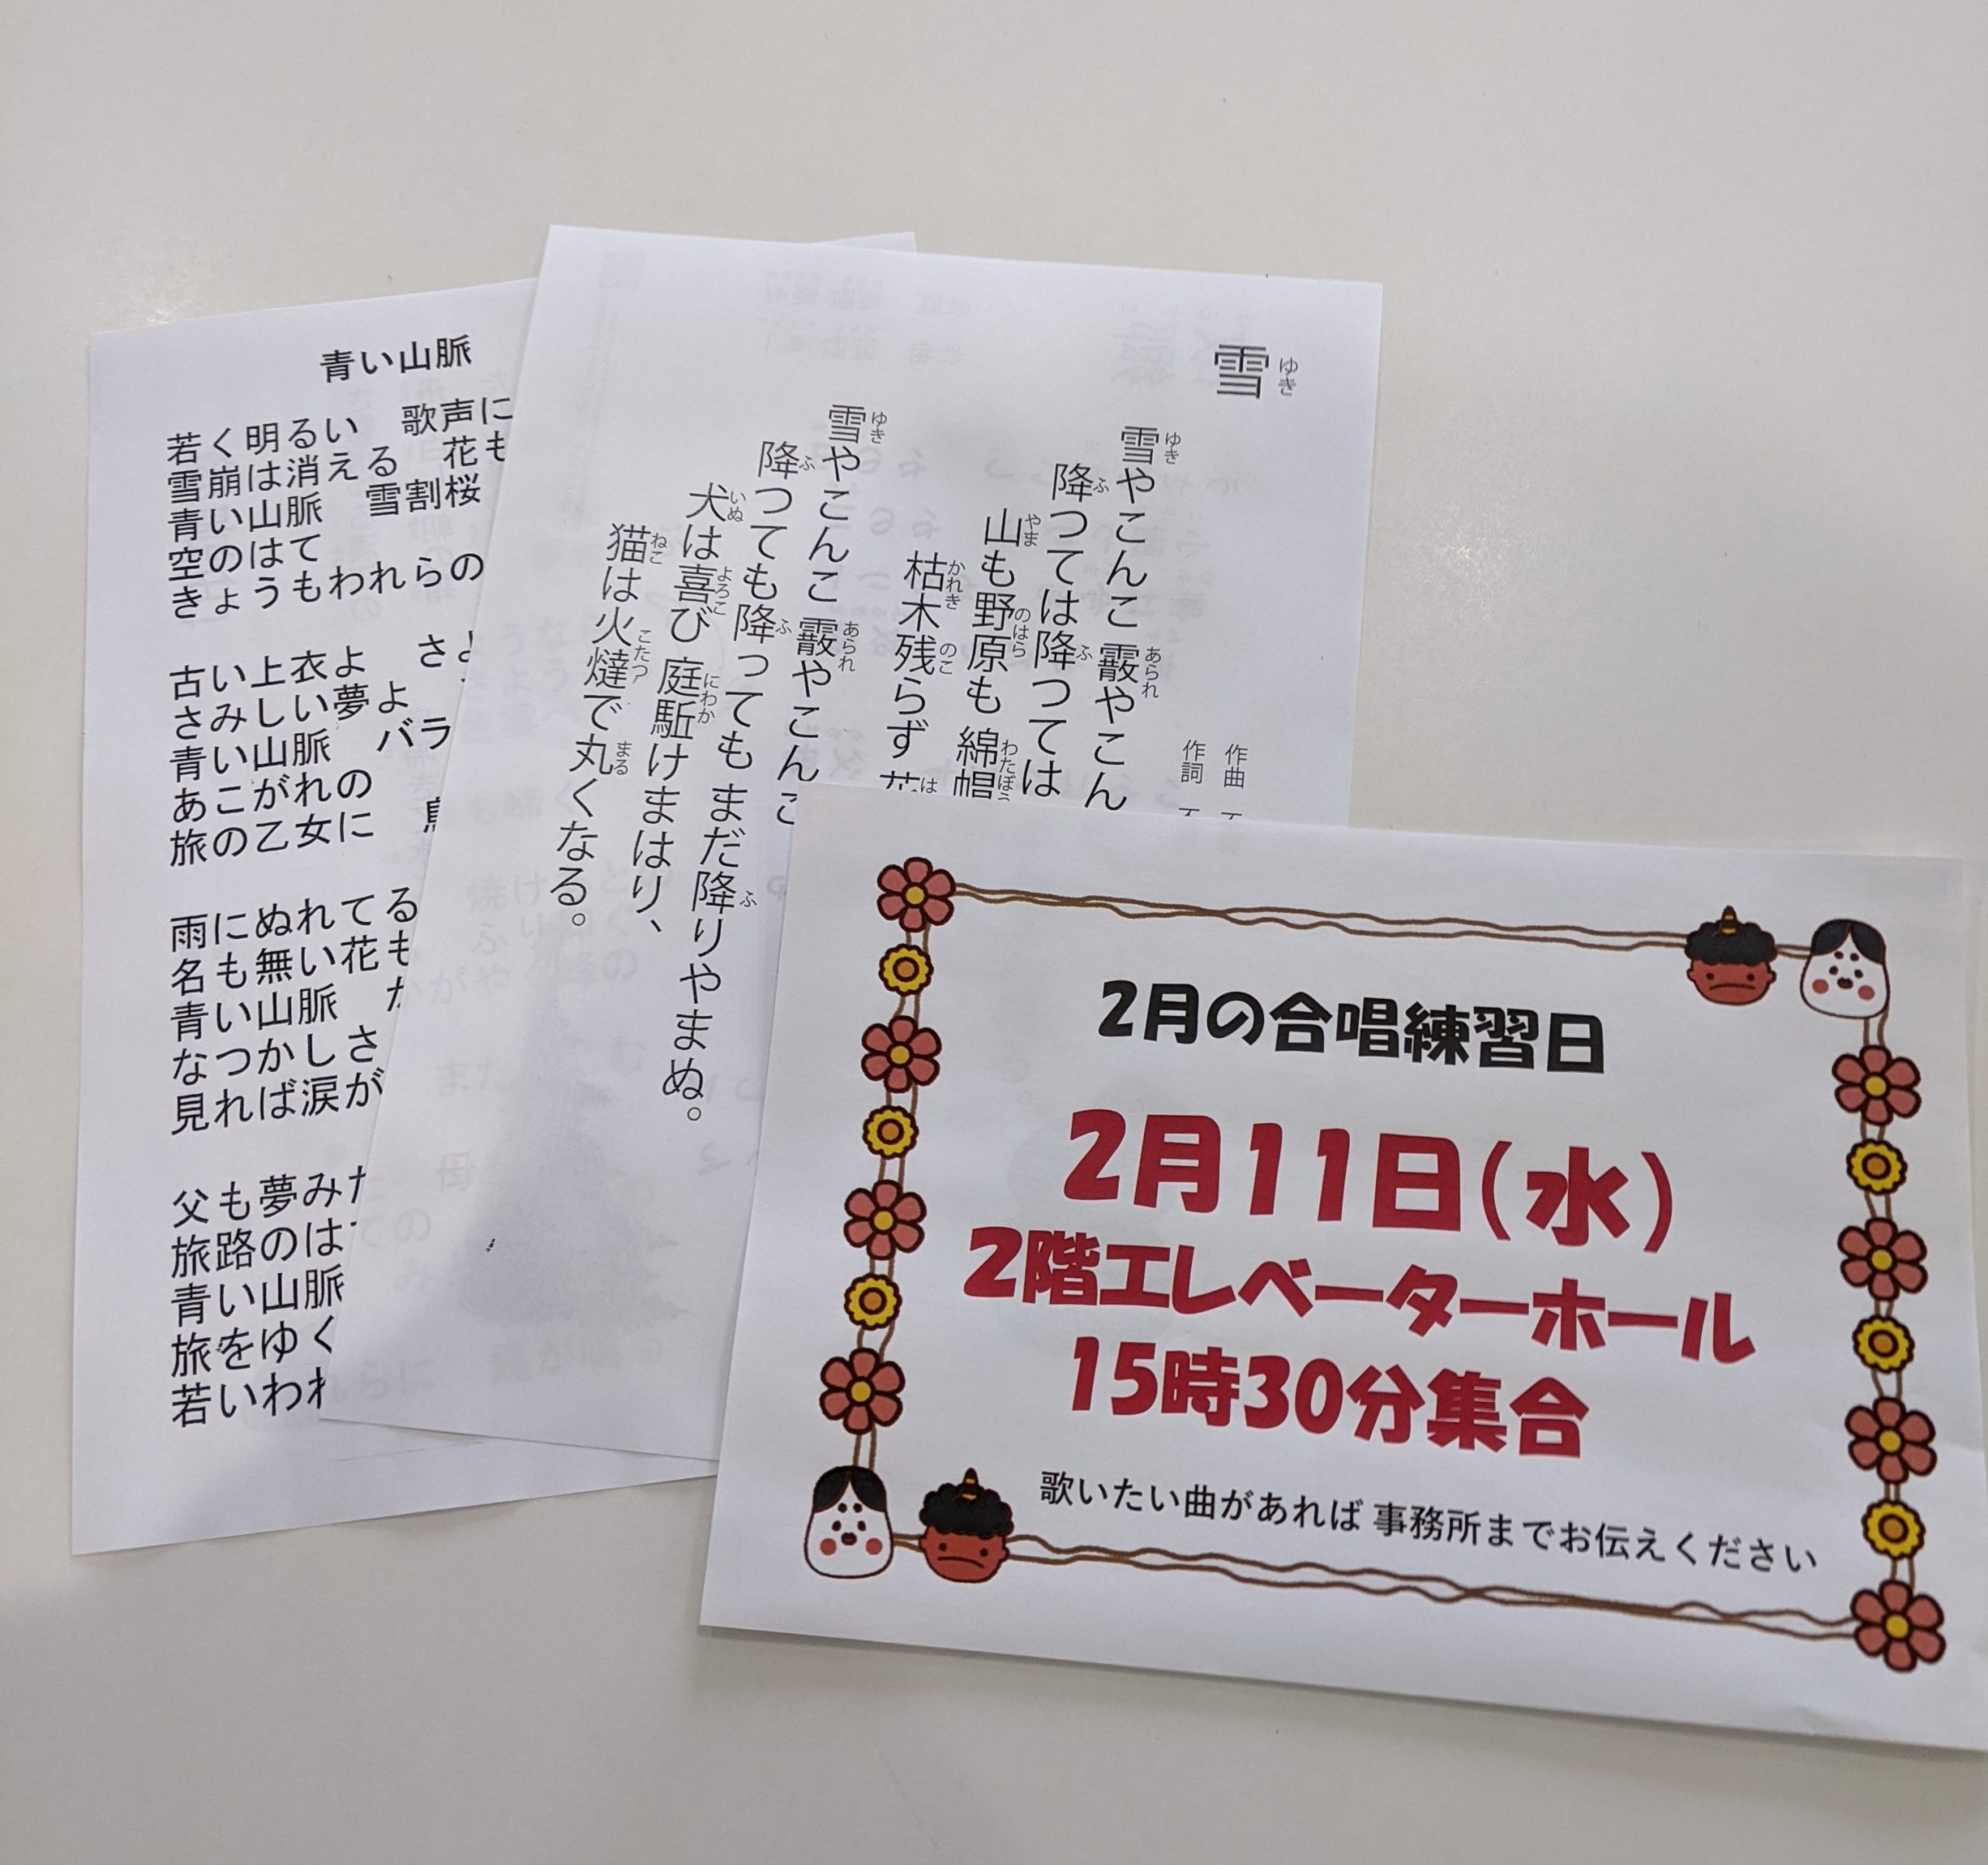 青い山脈
若く明るい 歌声に
雪崩は消える 花も
青い山脈 雪割桜
空のはて
きょうもわれらの
古い上衣よ さよ
さみしい夢よ
青い山脈 バラ
あこがれの
旅の乙女に
雨にぬれてる
名も無い花も
青い山脈
なつかしさ
見れば涙が
父も夢みた
旅路のは
青い山脈
旅をゆく
若いわれ
雪 ゆき
作曲
作詞
雪やこんこ 霰やこん
降つては降つては
山も野原も 綿帽
枯木残らず 花
雪やこんこ 霰やこんこ
降つても降っても まだ降りやまぬ。
犬は喜び 庭駈けまはり、
猫は火燵で丸くなる。
2月の合唱練習日
2月11日(水)
2階エレベーターホール
15時30分集合
歌いたい曲があれば 事務所までお伝えください